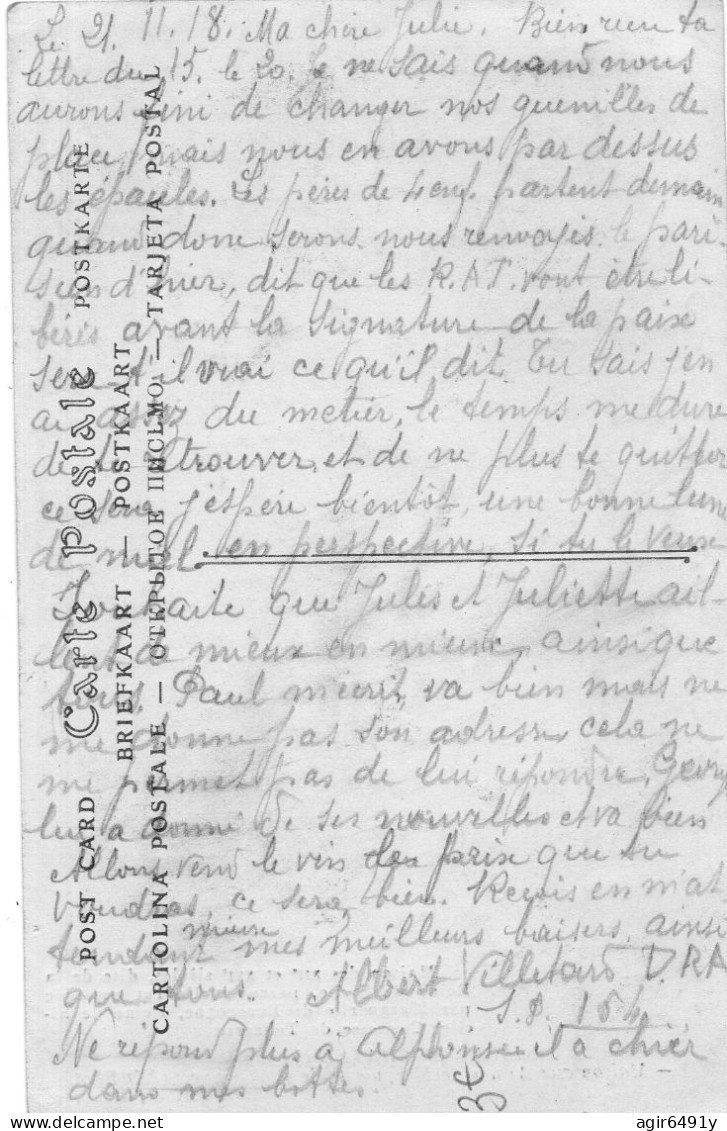 Le 21.11.18. Ma chère Julie. Bien recu ta
lettre du 15. le 20. Je ne sais quand nous
aurons fini de changer nos guenilles de
place, mais nous en avons par dessus
les épaules. Les pères de 4 enf. partent demain
quand donc serons nous renvoyés. le pari-
sien d'hier, dit que les R.A.T. vont être li-
bérés avant la signature de la paix
sera t'il vrai ce qu'il dit. Tu sais j'en
ai assez du metier, le temps me dure
de te retrouver, et de ne plus te quitter
ce sera j'éspére bientôt, une bonne lune
de miel en perspective, si tu le veux
Souhaite que Jules et Juliette ail-
lent de mieux en mieux, ainsi que
tous. Paul m'écrit, va bien mais ne
me donne pas son adresse, cela ne
me permet pas de lui répondre, Georg
lui a donné de ses nouvelles et va bien
Allons vend le vin le prix que tu
voudras, ce sera bien. Reçois en m'at
tendant mieux mes meilleurs baisers, ainsi
que tous. Albert Villetard D.R.A
S.P. 154.
Ne repond plus à Alphonse il a chier
dans mes bottes.
Carte Postale POSTKARTE
POST CARD
BRIEFKAART — POSTKAART
CARTOLINA POSTALE — ОТКРЫТОЕ ПИСЬМО — TARJETA POSTAL
3€
agir6491y